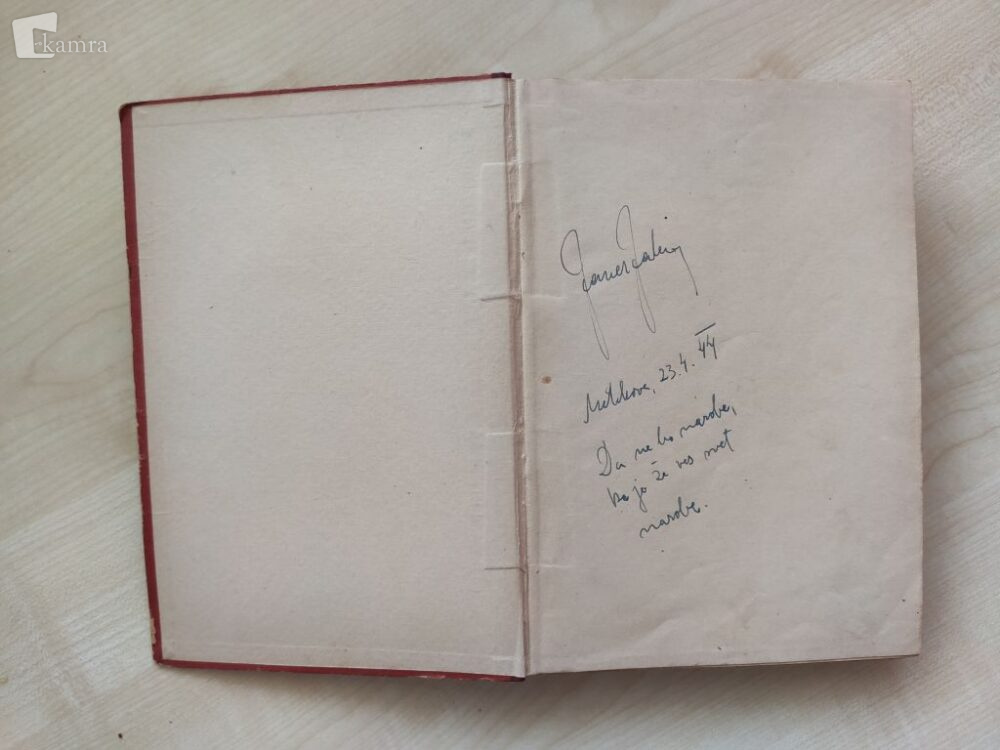 kamra
Janez Jalen
23.4.44
Da ne bo narobe,
ko je že ves svet
narobe.